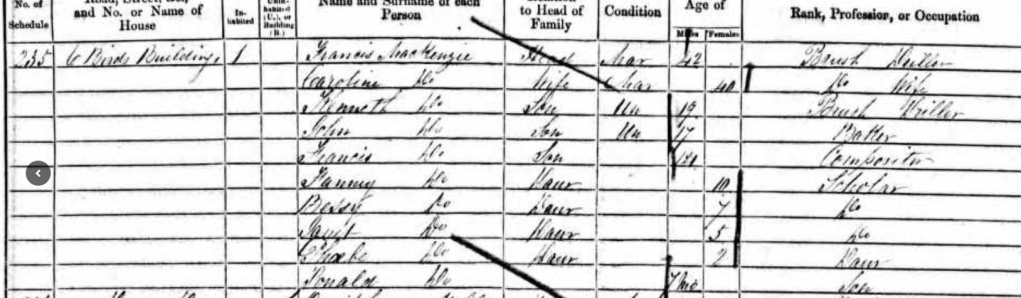 No. of Schedule | Road, Street, &c., and No. or Name of House | In-habited | Unin-habited (U.), or Building (B.) | Name and Surname of each Person | Relation to Head of Family | Condition | Age of Males Females | Rank, Profession, or Occupation
235 6 Birds Buildings 1 Francis MacKenzie Head Mar 42 Brush
Caroline Do Wife Mar 40 Do Wife
Kenneth Do Son Un 19 Brush
John Do Son Un 17 Baker
Francis Do Son Compositor
Fanny Do Daur 10 Scholar
Bessy Do Daur 7 Do
Do Daur 5 Do
Phoebe Do Daur 2 Daur
Donald Do 7 Mo Son